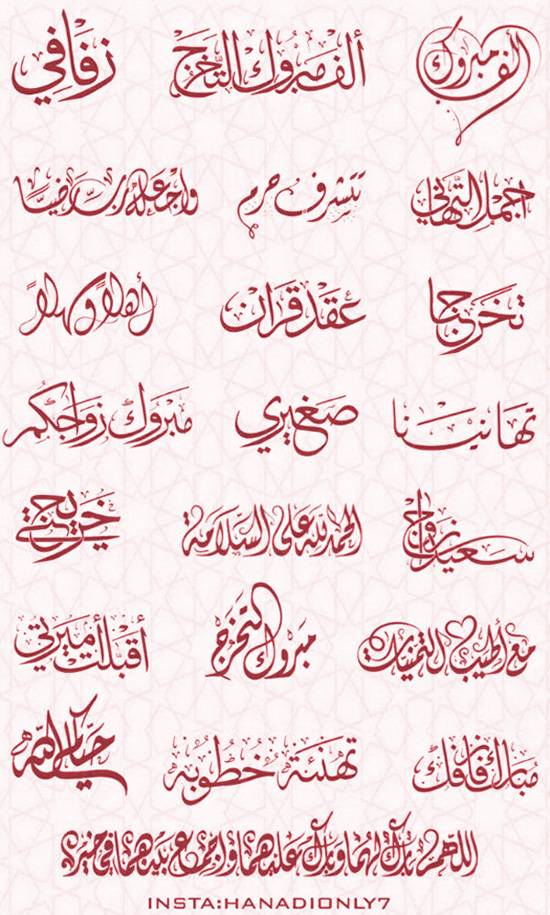 ألف مبروك
ألف مبروك التخرج
زفافي
أجمل التهاني
تتشرف حرم
واجعله رب رضيا
تخرجنا
عقد قران
أهلا وسهلا
تهانينا
صغيري
مبروك زواجكم
زواج سعيد
الحمدلله على السلامة
خريجتي
مع أطيب التمنيات
مبروك التخرج
أقبلت أميرتي
مبارك زفافك
تهنئة خطوبه
حياك الله
اللهم بارك لهما وبارك عليهما واجمع بينهما في خير
INSTA:HANADIONLY7